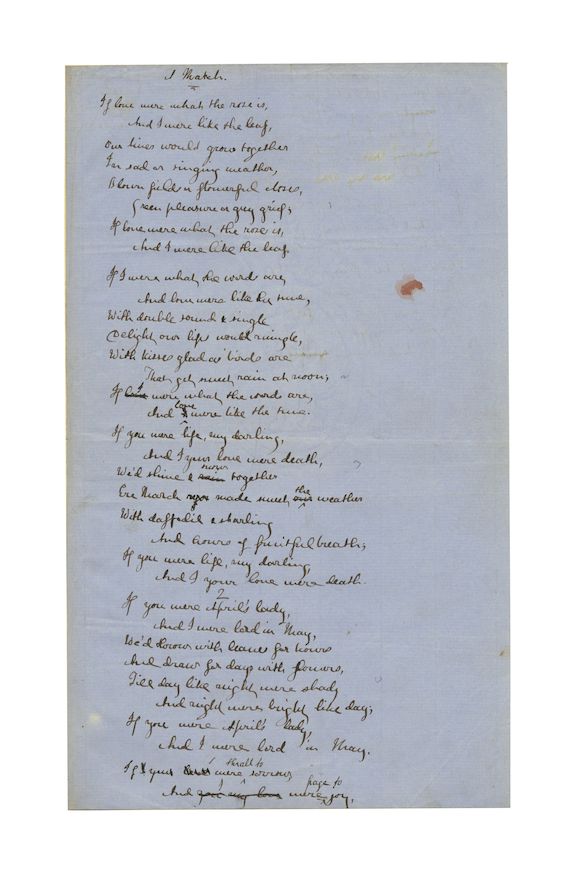 A Match.
If love were what the rose is,
And I were like the leaf,
Our lives would grow together
In sad or singing weather,
Blown fields or flowerful closes,
Green pleasure or grey grief;
If love were what the rose is,
And I were like the leaf.
If I were what the words are,
And love were like the tune,
With double sound & single
Delight our lips would mingle,
With kisses glad as birds are
That get sweet rain at noon;
If I were what the words are,
And love were like the tune.
If you were life, my darling,
And I your love were death,
We'd shine & snow together
Ere March made sweet the weather
With daffodil & starling
And hours of fruitful breath;
If you were life, my darling,
And I your love were death.
2
If you were April's lady,
And I were lord in May,
We'd throw with leaves for hours
And draw for days with flowers,
Till day like night were shady
And night were bright like day;
If you were April's lady,
And I were lord in May.
If you were thrall to sorrow,
And I were page to joy,